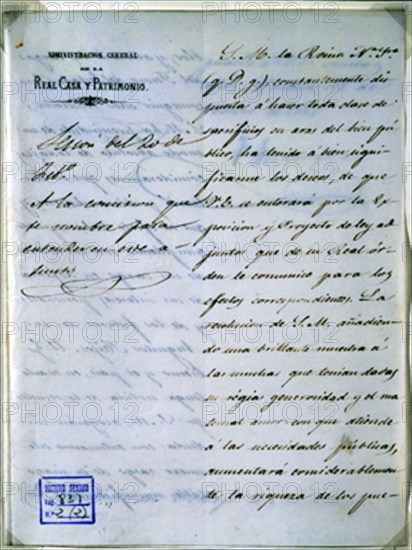 ADMINISTRACION GENERAL
DE LA
REAL CASA Y PATRIMONIO.
Sesion del 20 de
Feb.º
A la comision que
se nombre para
entender en este a-
sunto
S. M. la Reina N.ª S.ra
(q. D. g.), constantemente dis-
puesta á hacer toda clase de
sacrificios en aras del bien pú-
blico, ha tenido á bien signi-
ficarme los deseos, de que
V. E. se enterara por la Ex-
posicion y Proyecto de ley ad-
junto que de su Real ór-
den le comunico para los
efectos correspondientes. La
resolucion de S. M., añadien-
do una brillante muestra á
las muchas que tenian dadas
su régia generosidad y el ma-
ternal amor con que atiende
á las necesidades públicas,
aumentará considerablemen-
te la riqueza de los pue-
LEG. 831
N.º 2 (2)